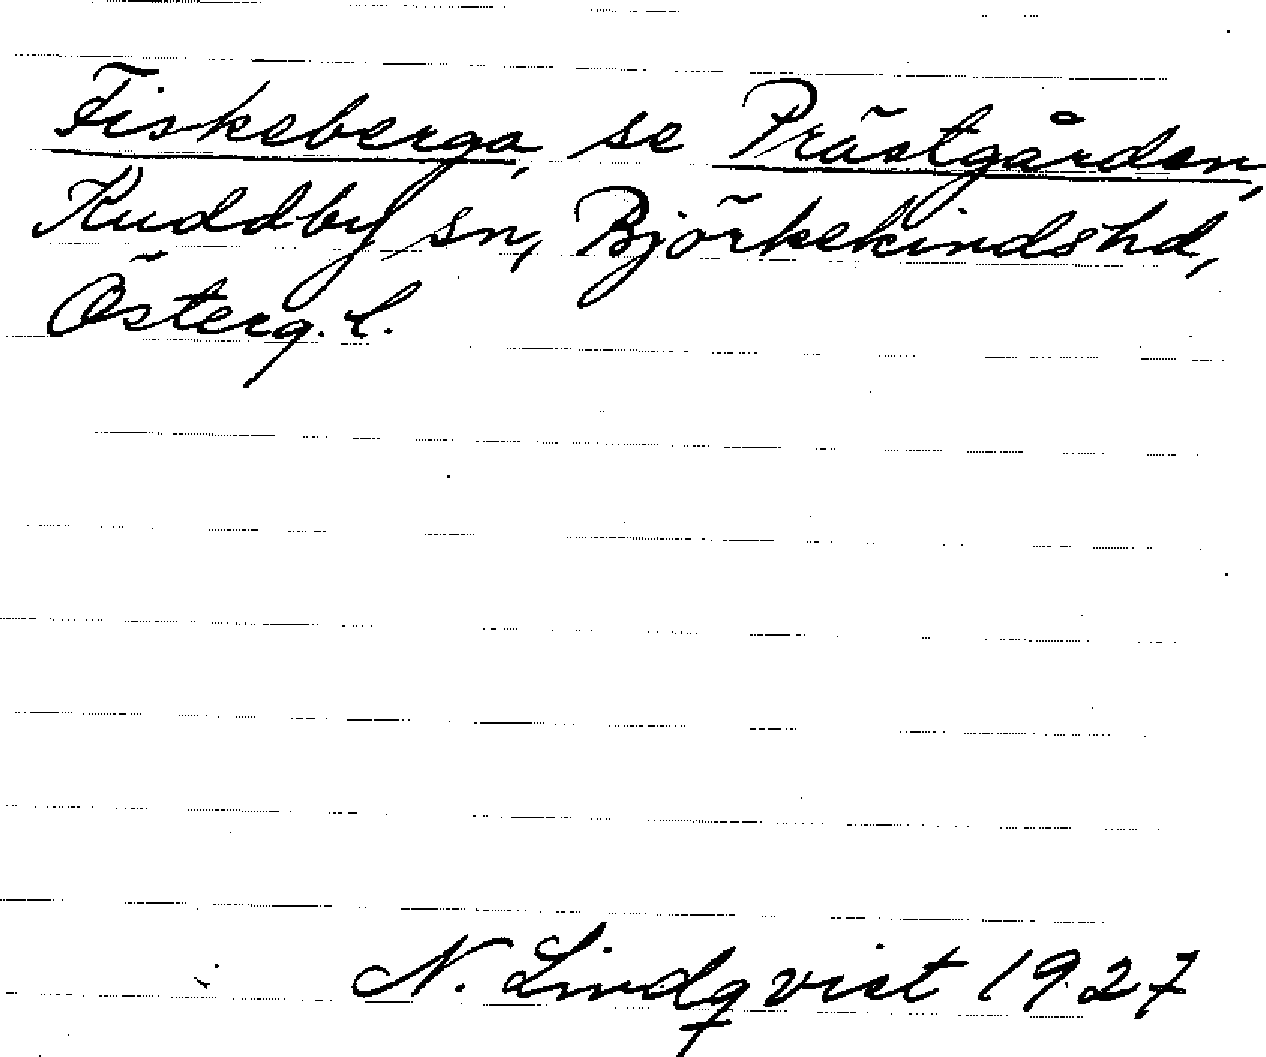 Fiskeberga, se Prästgården,
Kuddby sn, Björkekinds hd,
Österg. l.
N. Lindqvist 1927